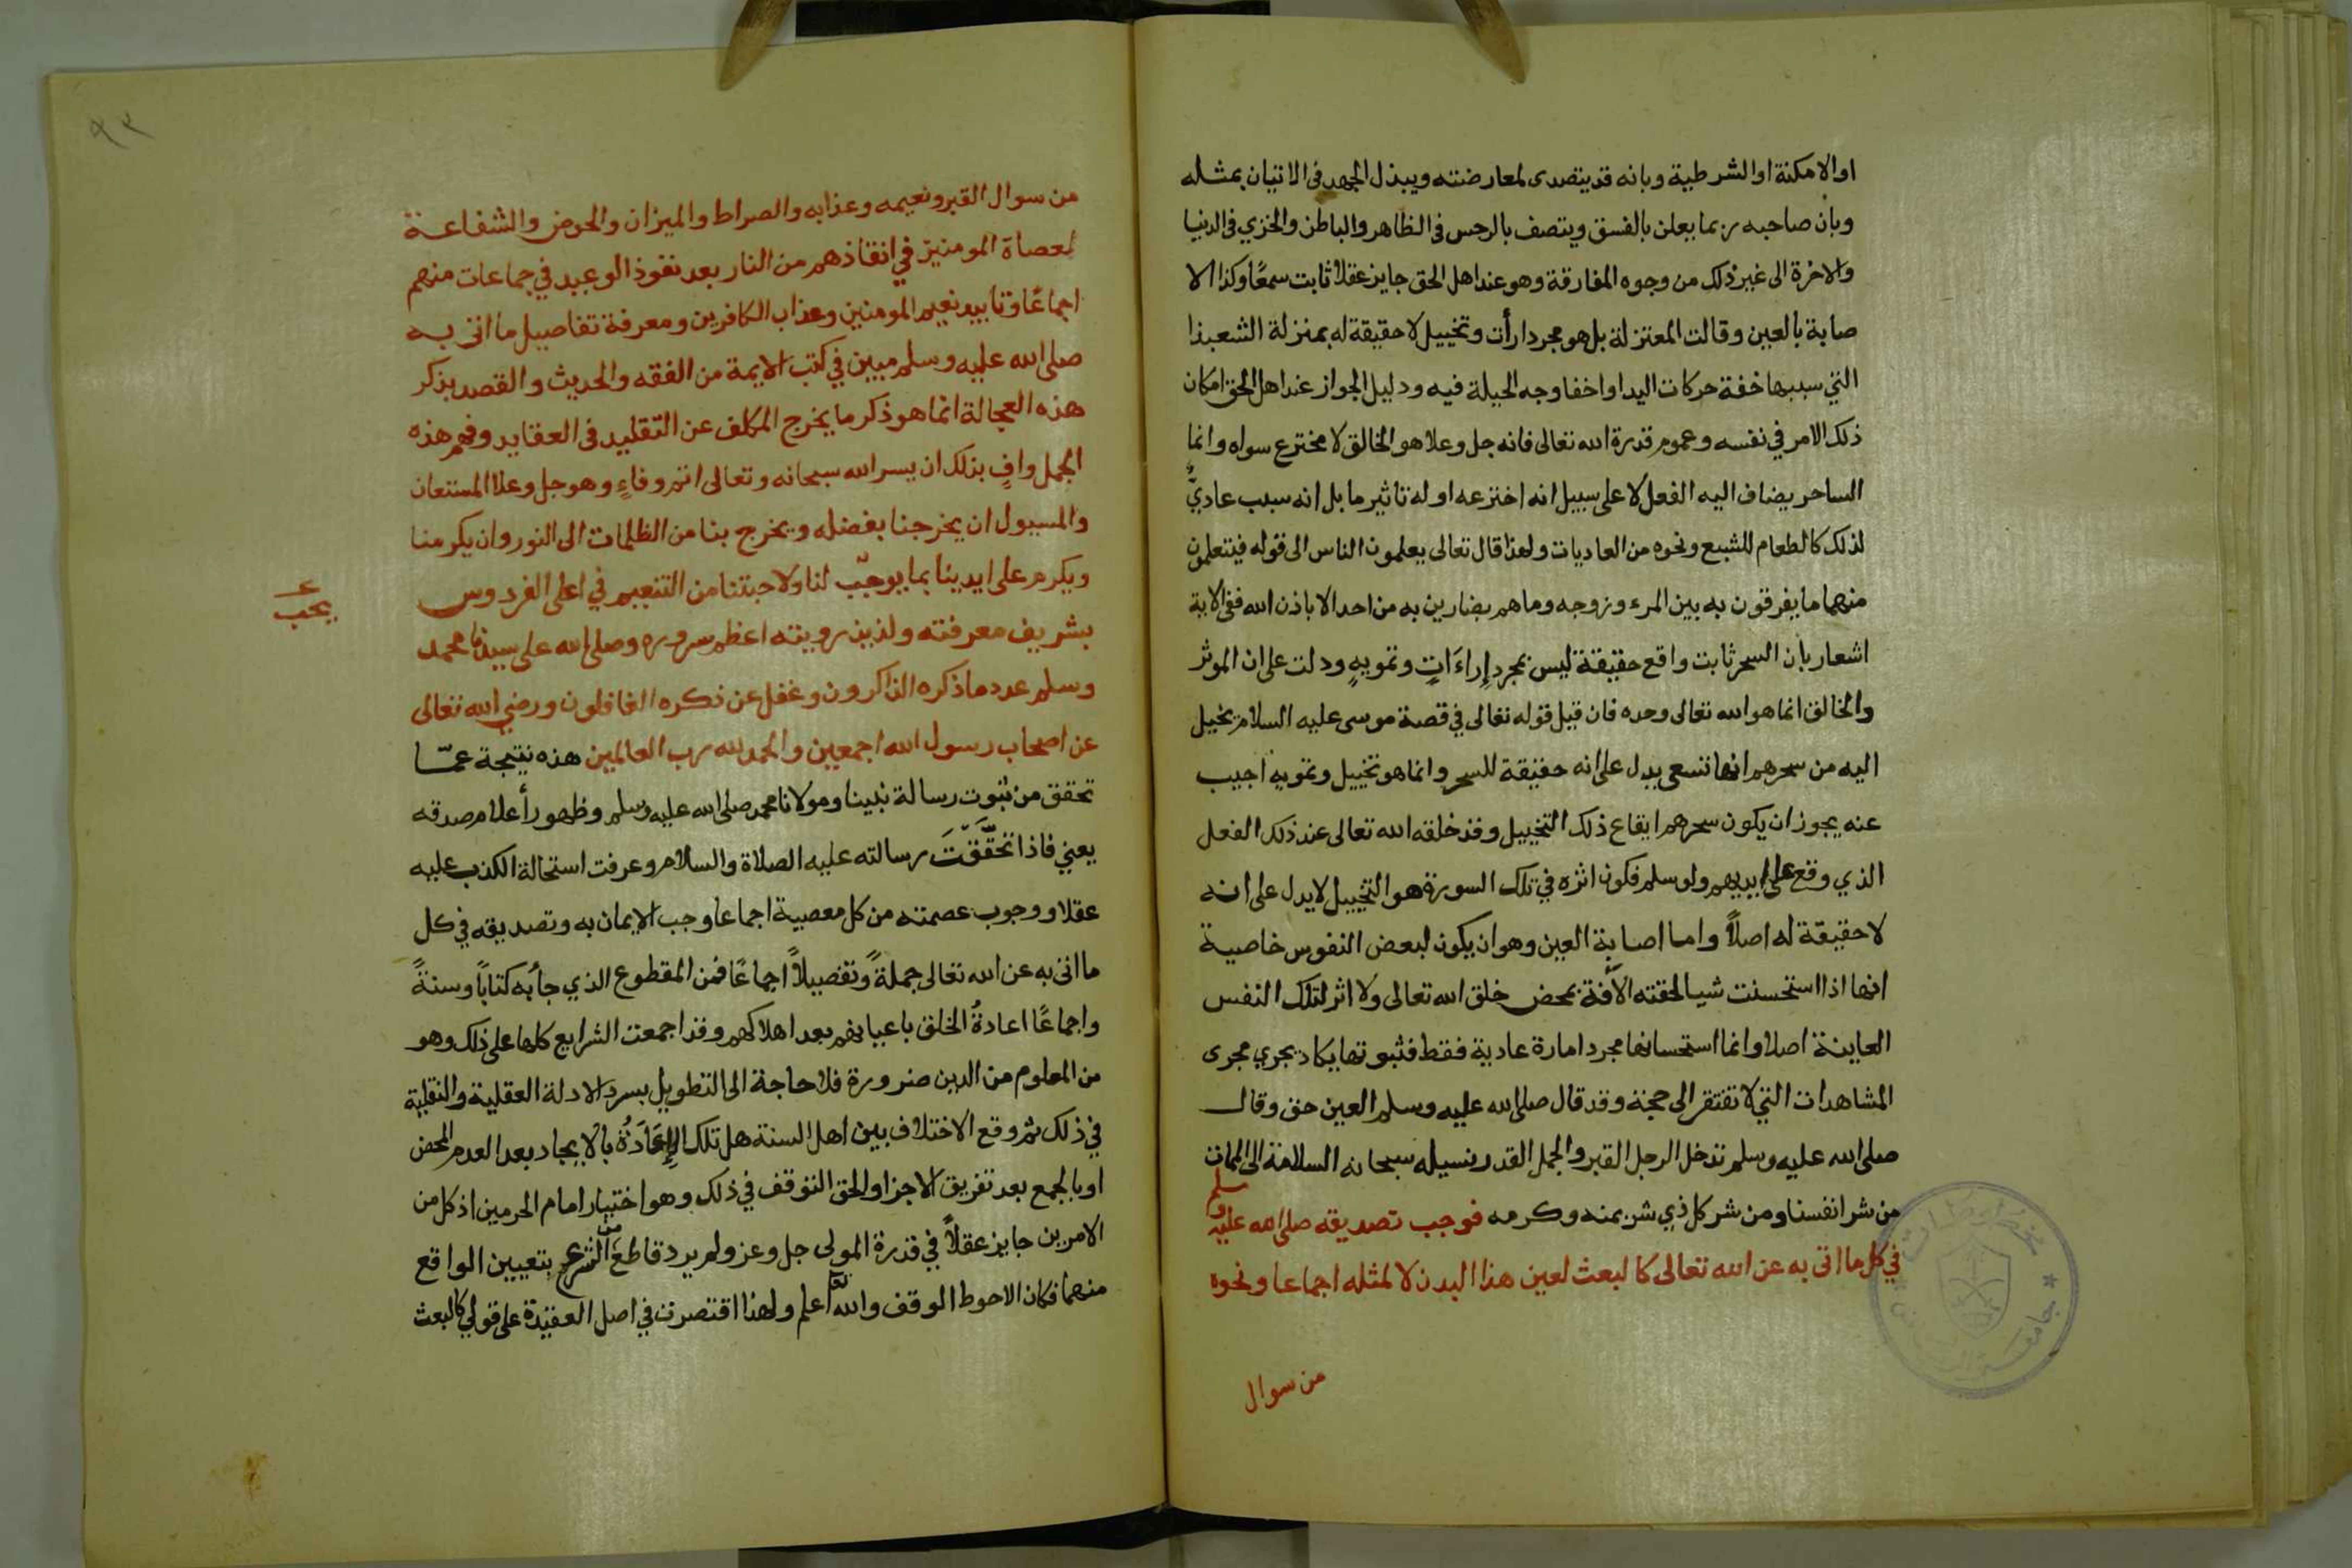 او الامكنة او الشرطية وبانه قد يتصدى لمعارضته ويبذل الجهد في الاتيان بمثله
وبان صاحبه ربما يعلن بالفسق ويتصف بالرجس في الظاهر والباطن والخزي في الدنيا
والاخرة الى غير ذلك من وجوه المفارقة وهو عند اهل الحق جايز عقلا ثابت سمعًا وكذا الا
صابة بالعين وقالت المعتزلة بل هو مجرد ارأت وتخييل لا حقيقة له بمنزلة الشعبذا
التي سببها خفة حركات اليد او اخفا وجه الحيلة فيه ودليل الجواز عند اهل الحق امكان
ذلك الامر في نفسه وعموم قدرة الله تعالى فانه جل وعلا هو الخالق لا مخترع سواه وانما
الساحر يضاف اليه الفعل لا على سبيل انه اخترعه او له تاثير ما بل انه سبب عاديٌّ
لذلك كالطعام للشبع ونحوه من العاديات ولهذا قال تعالى يعلمون الناس الى قوله فيتعلمون
منهما ما يفرقون به بين المرء وزوجه وما هم بضارين به من احد الا باذن الله ففي الاية
اشعار بان السحر ثابت واقع حقيقة ليس بمجرد إراءَاتٍ وتمويهٍ ودلت على ان الموثر
والخالق انما هو الله تعالى وحده فان قيل قوله تعالى في قصة موسى عليه السلام يخيل
اليه من سحرهم انها تسعى يدل على انه حقيقة للسحر وانما هو تخييل وتمويه اجيب
عنه يجوز ان يكون سحرهم ايقاع ذلك التخييل وقد خلقه الله تعالى عند ذلك الفعل
الذي وقع على ايديهم ولو سلم فكون اثره في تلك السورة هو التخييل لا يدل على انه
لا حقيقة له اصلاً واما اصابة العين وهو ان يكون لبعض النفوس خاصية
انها اذا استحسنت شيا لحقته الآفة بمحض خلق الله تعالى ولا اثر لتلك النفس
العاينة اصلا وانما استحسانها مجرد امارة عادية فقط فثبوتها يكاد يجري مجرى
المشاهدات التي لا تفتقر الى حجة وقد قال صلى الله عليه وسلم العين حق وقال
صلى الله عليه وسلم تدخل الرجل القبر والجمل القدر نسيله سبحانه السلامة الى الممات
من شر انفسنا ومن شر كل ذي شر بمنه وكرمه فوجب تصديقه صلى الله عليه وسلم
في كل ما اتى به عن الله تعالى كالبعث لعين هذا البدن لا لمثله اجماعا ونحوه
من سوال
٩٣
من سوال القبر ونعيمه وعذابه والصراط والميزان والحوض والشفاعة
لعصاة المومنين في انقاذهم من النار بعد نفوذ الوعيد في جماعات منهم
اجماعًا وتابيد نعيم المومنين وعذاب الكافرين ومعرفة تفاصيل ما اتى به
صلى الله عليه وسلم مبين في كتب الايمة من الفقه والحديث والقصد بذكر
هذه العجالة انما هو ذكر ما يخرج المكلف عن التقليد في العقايد وفهم هذه
الجمل وافٍ بذلك ان يسر الله سبحانه وتعالى اتم وفاءٍ وهو جل وعلا المستعان
والمسيول ان يخرجنا بفضله ويخرج بنا من الظلمات الى النور وان يكرمنا
ويكرم على ايدينا بما يوجب لنا ولاحبتنا من التنعيم في اعلى الفردوس
يحب
بشريف معرفته ولذيذ رويته اعظم سروره وصلى الله على سيدنا محمد
وسلم عدد ما ذكره الذاكرون وغفل عن ذكره الغافلون ورضي الله تعالى
عن اصحاب رسول الله اجمعين والحمد لله رب العالمين هذه نتيجة عمّا
تحقق من ثبوت رسالة نبينا ومولانا محمد صلى الله عليه وسلم وظهور أعلام صدقه
يعني فاذا تحقّقت رسالته عليه الصلاة والسلام وعرفت استحالة الكذب عليه
عقلا ووجوب عصمته من كل معصية اجماعا وجب الايمان به وتصديقه في كل
ما اتى به عن الله تعالى جملةً وتفصيلاً اجماعًا فمن المقطوع الذي جأ به كتابًا وسنةً
واجماعًا اعادةُ الخلق باعيانهم بعد اهلاكهم وقد اجمعت الشرايع كلها على ذلك وهو
من المعلوم من الدين ضرورة فلا حاجة الى التطويل بسرد الادلة العقلية والنقلية
في ذلك ثم وقع الاختلاف بين اهل السنة هل تلك الإعَادَةُ بالايجاد بعد العدم المحض
او بالجمع بعد تفريق الاجزا والحق التوقف في ذلك وهو اختيار امام الحرمين اذ كل من
الامرين جايز عقلاً في قدرة المولى جل وعز ولم يرد قاطع من الشرع بتعيين الواقع
منهما فكان الاحوط الوقف والله تعالى اعلم ولهذا اقتصرت في اصل العقيدة على قولي كالبعث